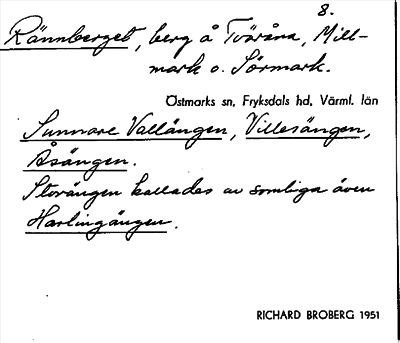 8.
Rännberget, berg å Tväråna, Mill-
mark o. Sörmark.
Östmarks sn, Fryksdals hd, Värml. län
Sunnare Vallängen, Villesängen,
Åsängen.
Storängen kallades av somliga även
Harlingängen.
RICHARD BROBERG 1951